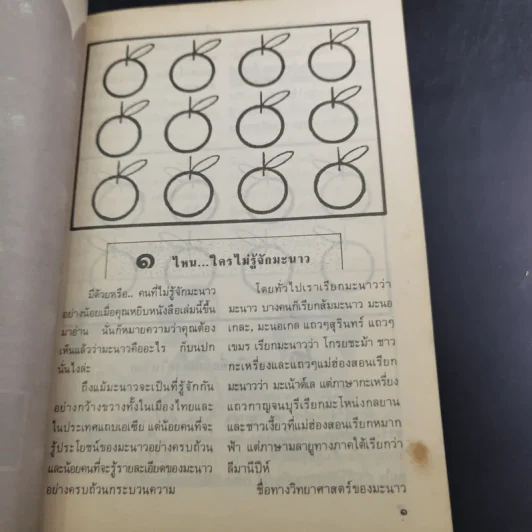 ๑ ไหน...ใครไม่รู้จักมะนาว
มีด้วยหรือ.. คนที่ไม่รู้จักมะนาว
อย่างน้อยเมื่อคุณหยิบหนังสือเล่มนี้ขึ้น
มาอ่าน นั่นก็หมายความว่าคุณต้อง
เห็นแล้วว่ามะนาวคืออะไร ก็บนปก
นั่นไงล่ะ
ถึงแม้มะนาวจะเป็นที่รู้จักกัน
อย่างกว้างขวางทั้งในเมืองไทยและ
ในประเทศแถบเอเชีย แต่น้อยคนที่จะ
รู้ประโยชน์ของมะนาวอย่างครบถ้วน
และน้อยคนที่จะรู้รายละเอียดของมะนาว
อย่างครบถ้วนกระบวนความ
โดยทั่วไปเราเรียกมะนาวว่า
มะนาว บางคนก็เรียกส้มมะนาว มะนอ
เกละ, มะนอเกล แถวๆสุรินทร์ แถวๆ
เขมร เรียกมะนาวว่า โกรยชะม้า ชาว
กะเหรี่ยงและแถวๆแม่ฮ่องสอนเรียก
มะนาวว่า มะเน้าด์เล แต่ภาษากะเหรี่ยง
แถวกาญจนบุรีเรียกมะโหน่งกลยาน
และชาวเงี้ยวที่แม่ฮ่องสอนเรียกหมาก
ฟ้า แต่ภาษามลายูทางภาคใต้เรียกว่า
ลีมานีปีห์
ชื่อทางวิทยาศาสตร์ของมะนาว
๑